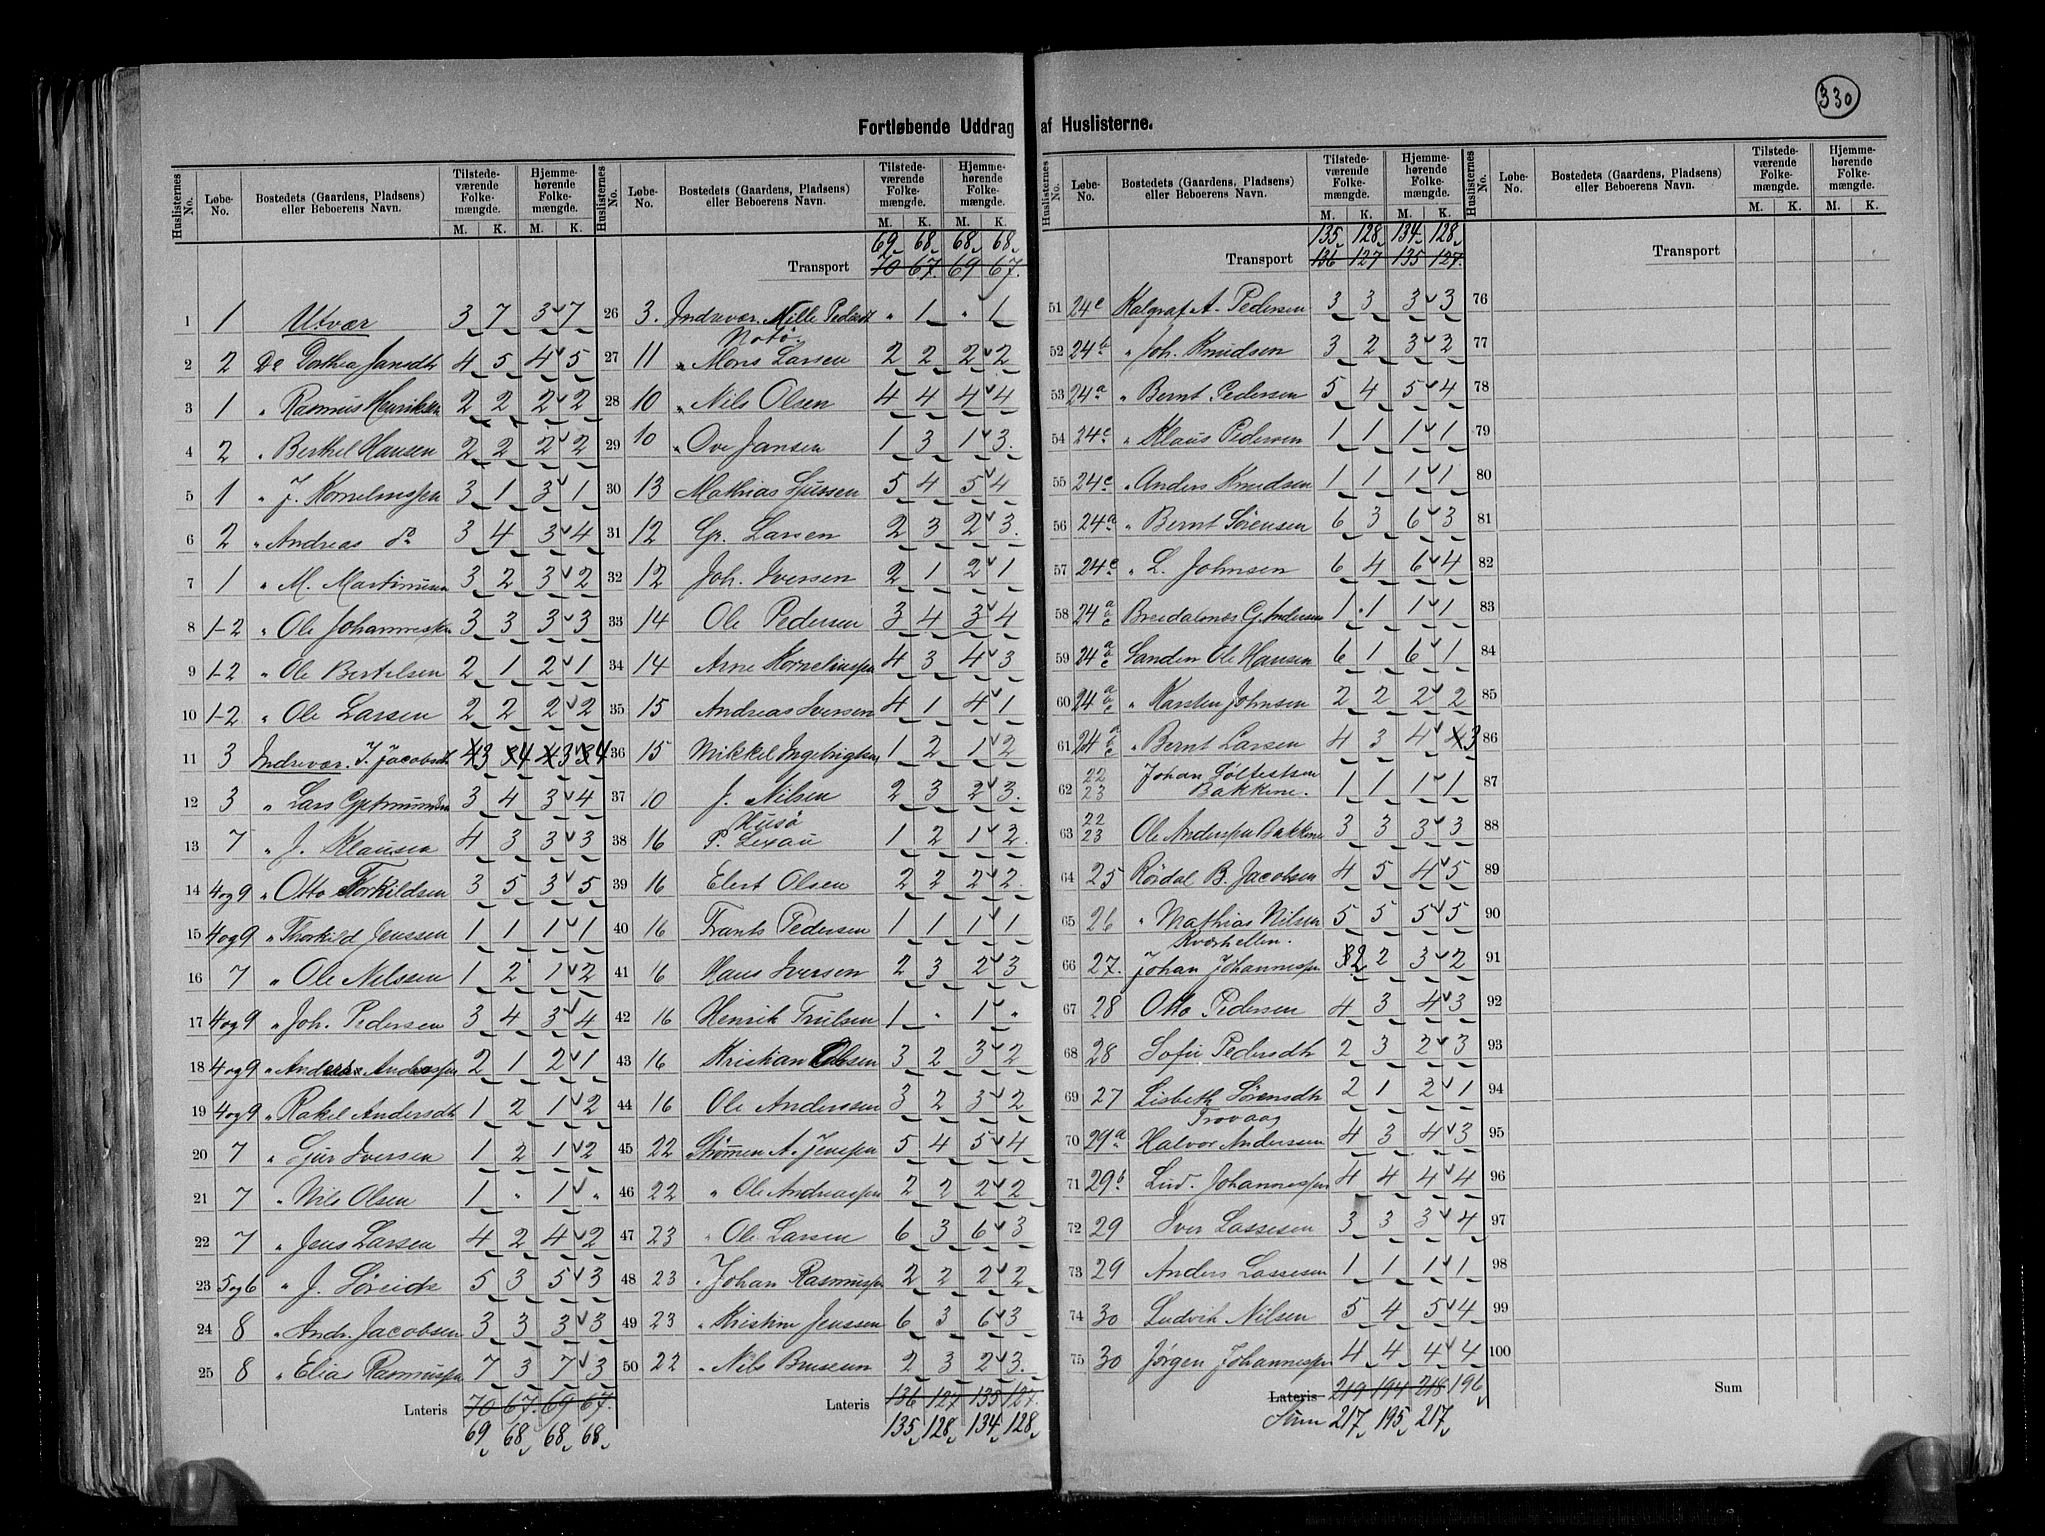 330
Fortløbende Uddrag af Huslisterne.
Huslisternes No. Løbe-No. Bostedets (Gaardens, Pladsens) eller Beboerens Navn. Tilstedeværende Folkemængde. Hjemmehørende Folkemængde.
M. K. M. K.
1 1 Utvær 3 7 3 7
2 2 Do Dorthea Jansdtr 4 5 4 5
3 1 " Rasmus Henriksen 2 2 2 2
4 2 " Berthel Hansen 2 2 2 2
5 1 " J. Kornelinssen 3 1 3 1
6 2 " Andreas do 3 4 3 4
7 1 " M. Martinusen 3 2 3 2
8 1-2 " Ole Johannessen 3 3 3 3
9 1-2 " Ole Bertelsen 2 1 2 1
10 1-2 " Ole Larsen 2 2 2 2
11 3 Indrevær. J. Jacobsdt 4 3 3 4 4 3 3 4
12 3 " Lars 3 4 3 4
13 7 " J. Klausen 4 3 3 3
14 4og9 " Otto Torkildsen 3 5 3 5
15 4og9 " Thorkild Jenssen 1 1 1 1
16 7 " Ole Nilssen 1 2 1 2
17 4og9 " Joh. Pedersen 3 4 3 4
18 4og9 " Anders Andersen 2 1 2 1
19 4og9 " Rakel Andersdt 1 2 1 2
20 7 " Gjür Iversen 1 2 1 2
21 7 " Nils Olsen 1 " 1 "
22 7 " Jens Larsen 4 2 4 2
23 5og6 " J. Söreide 5 3 5 3
24 8 " Andr. Jacobsen 3 3 3 3
25 8 " Elias Rasmussen 7 3 7 3
Lateris 70 67. 69 67.
69 68 68 68
Huslisternes No. Løbe-No. Bostedets (Gaardens, Pladsens) eller Beboerens Navn. Tilstedeværende Folkemængde. Hjemmehørende Folkemængde.
M. K. M. K.
69 68 68 68
Transport 70 67. 69 67.
26 3. Indrevær. Nille Pedersdt " 1 " 1
Notö
27 11 " Mons Larsen 2 2 2 2
28 10 " Nils Olsen 4 4 4 4
29 10 " Ove Jansen 1 3 1 3.
30 13 Mathias 5 4 5 4
31 12 Gr. Larsen 2 3 2 3.
32 12 Joh. Iversen 2 1 2 1
33 14 Ole Pedersen 3 4 3 4
34 14 Arne Kornelinssen 4 3 4 3
35 15 Andreas Iversen 4 1 4 1
36 15 Mikkel Ingebrigtsen 1 2 1 2
37 10 J. Nilsen 2 3 2 3.
Husö
38 16 P. Lexau 1 2 1 2.
39 16 Elert Olsen 2 2 2 2.
40 16 Frants Pedersen 1 1 1 1
41 16 Hans Iversen 2 3 2 3
42 16 Henrik Trulsen 1 " 1 "
43 16 Kristian Olsen 3 2 3 2
44 16 Ole Anderssen 3 2 3 2
45 22 Strömen A. Jenssen 5 4 5 4
46 22 " Ole Andreassen 2 2 2 2
47 23 " Ole Larsen 6 3 6 3
48 23 " Johan Rasmussen 2 2 2 2
49 23 " Kristine Jenssen 6 3 6 3
50 22 " Nils 2 3 2 3.
Lateris 136 127 135 127.
135 128 134 128
Huslisternes No. Løbe-No. Bostedets (Gaardens, Pladsens) eller Beboerens Navn. Tilstedeværende Folkemængde. Hjemmehørende Folkemængde.
M. K. M. K.
135 128 134 128
Transport 136 127 135 127.
51 24c Kalgraf A. Pedersen 3 3 3 3
52 24a " Joh. Knudsen 3 2 3 2
53 24a " Bernt Pedersen 5 4 5 4
54 24c " Klaus Pedersen 1 1 1 1
55 24c " Anders Knudsen 1 1 1 1
56 24a " Bernt Sörensen 6 3 6 3
57 24c " L. Johnsen 6 4 6 4
58 24 a b c G. Andersen 1 1 1 1
59 24 a b c Sanden Ole Hansen 6 1 6 1
60 24 a b c " Karsten Johnsen 2 2 2 2
61 24 a b c " Bernt Larsen 4 3 4 4 3
62 22 23 Johan Bakkene. 1 1 1 1
63 22 23 Ole Anderssen Bakkene 3 3 3 3
64 25 Röidal B. Jacobsen 4 5 4 5
65 26 " Mathias Nilsen 5 5 5 5
Kvernhellen.
66 27. Johan Johannessen 3 2 2 3 2
67 28 Otto Pedersen 4 3 4 3
68 28 Sofie Pedersdt 2 3 2 3
69 27 Lisbeth Sörensdt 2 1 2 1
Trovaag
70 29a Halvor Anderssen 4 3 4 3
71 29b Lud. Johannessen 4 4 4 4
72 29 Iver Lassesen 3 3 3 4
73 29 Anders Lassesen 1 1 1 1
74 30 Ludvik Nilsen 5 4 5 4
75 30 Jörgen Johannessen 4 4 4 4
Lateris 219 194 218 196
Sum 217 195 217
Huslisternes No. Løbe-No. Bostedets (Gaardens, Pladsens) eller Beboerens Navn. Tilstedeværende Folkemængde. Hjemmehørende Folkemængde.
M. K. M. K.
Transport
76
77
78
79
80
81
82
83
84
85
86
87
88
89
90
91
92
93
94
95
96
97
98
99
100
Sum